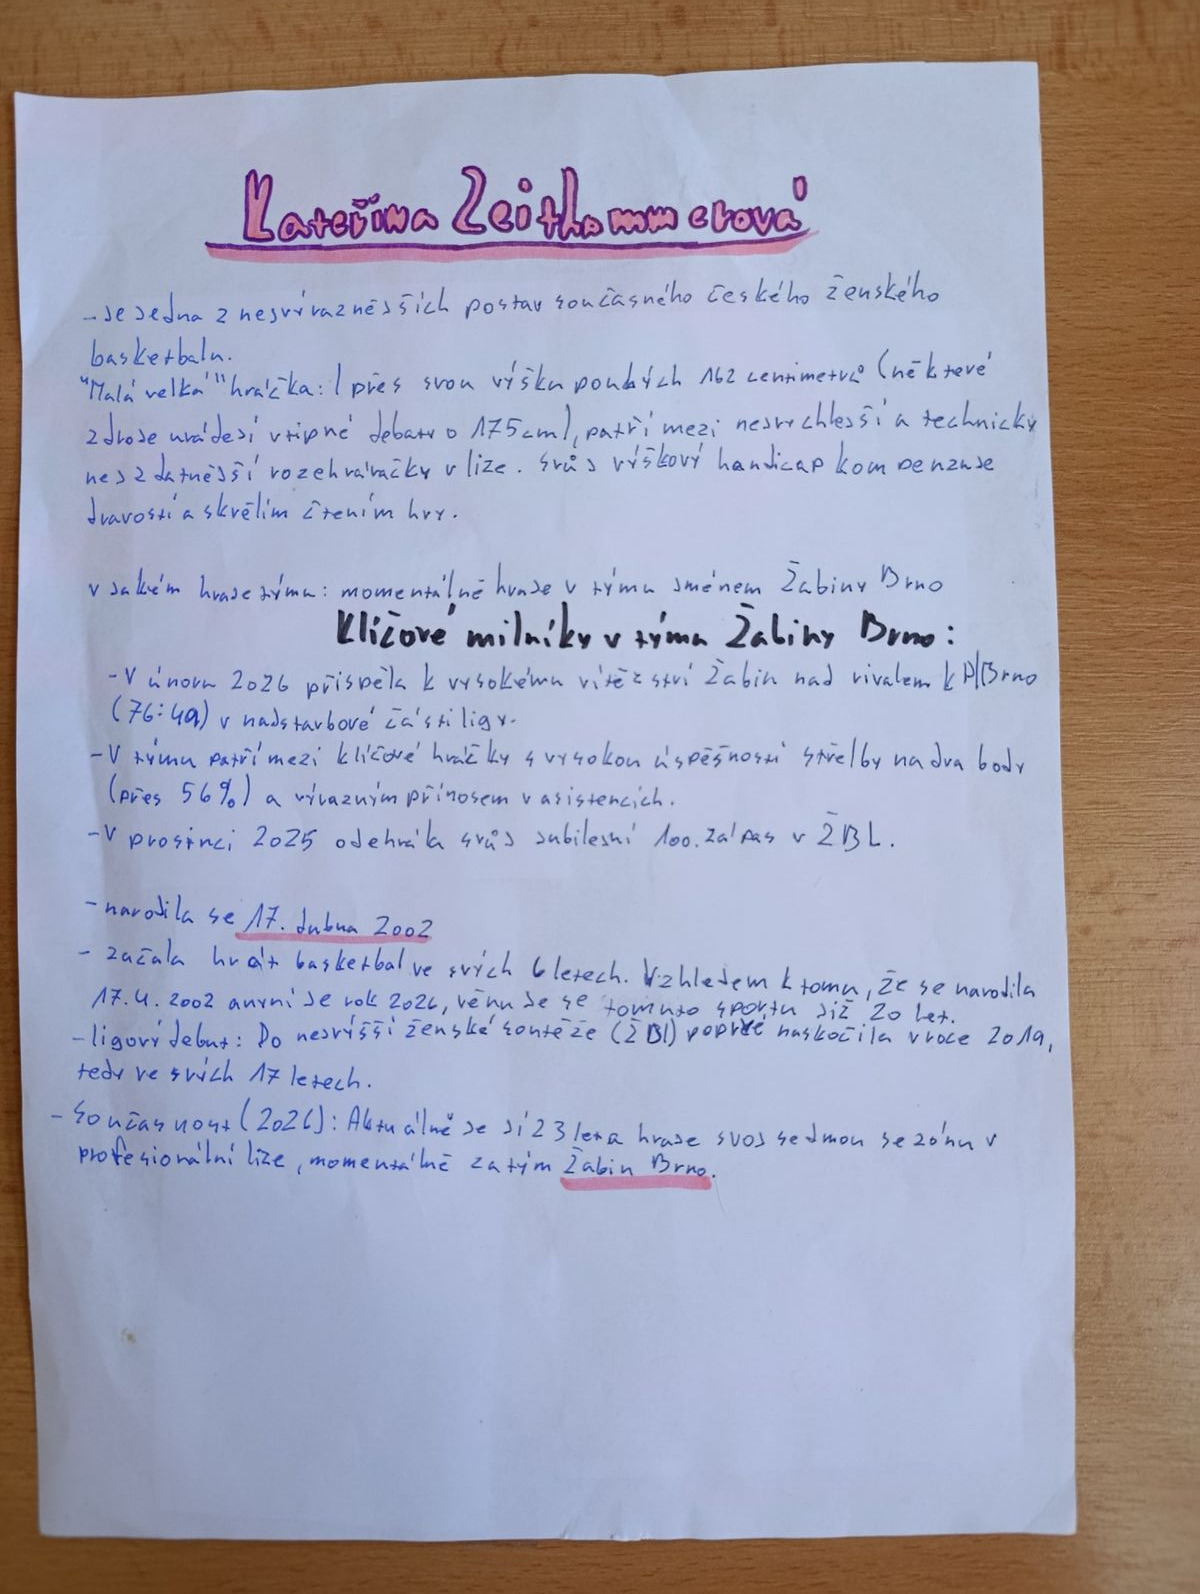 Kateřina Zeithammerová
- je jedna z nejvýraznějších postav současného českého ženského
basketbalu.
"Malá velká" hráčka: I přes svou výšku pouhých 162 centimetrů (některé
zdroje uvádějí vtipné debaty o 175cm), patří mezi nejrychlejší a technicky
nejzdatnější rozehrávačky v lize. Svůj výškový handicap kompenzuje
dravostí a skvělím čtením hry.
v jakém hraje týmu: momentálně hraje v týmu jménem Žabiny Brno
Klíčové milníky v týmu Žabiny Brno:
- V únoru 2026 přispěla k vysokému vítězství Žabin nad rivalem KP Brno
(76:49) v nadstavbové části ligy.
- V týmu patří mezi klíčové hráčky s vysokou úspěšností střelby na dva body
(přes 56%) a výrazným přínosem v asistencích.
- V prosinci 2025 odehrála svůj jubilejní 100. zápas v ŽBL.
- narodila se 17. dubna 2002
- začala hrát basketbal ve svých 6 letech. Vzhledem k tomu, že se narodila
17.4. 2002 a nyní je rok 2026, věnuje se tomuto sportu již 20 let.
- ligový debut: Do nejvyšší ženské soutěže (ŽBL) poprvé naskočila v roce 2019,
tedy ve svých 17 letech.
- Současnost (2026): Aktuálně je jí 23 let a hraje svoj sedmou sezónu v
profesionální lize, momentálně za tým Žabin Brno.